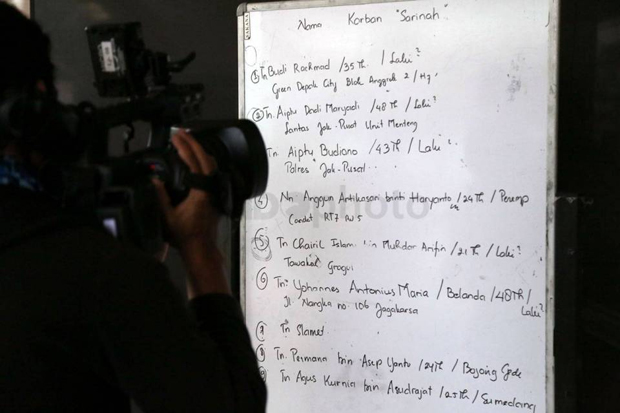 Nama Korban "Sarinah"
① Tn Budi Rachmad / 35 Th / Laki²
Green Depok City Blok Anggrek 2 /
② Tn. Aiptu Dodi Maryadi / 48 Th / Laki²
Lantas Jak-Pusat Unit Menteng
Tn. Aiptu Budiono / 43 Th / Laki²
Polres Jak-Pusat
④ Nn. Anggun Artikasari binti Haryanto / 24 Th / Peremp
Condet RT7 RW 5
⑤ Tn Chairil Islami bin Muhdar Arifin / 21 Th / Laki²
Tawakal Grogol
⑥ Tn. Yohannes Antonius Maria / Belanda / 48 Th /
Laki²
Jl. Nangka no 106 Jagakarsa
⑦ Tn Slamet
⑧ Tn. Permana bin Asep Yanto / 24 Th / Bojong Gede
⑨ Tn Agus Kurnia bin Asudrajat / 25 Th / Sumedang